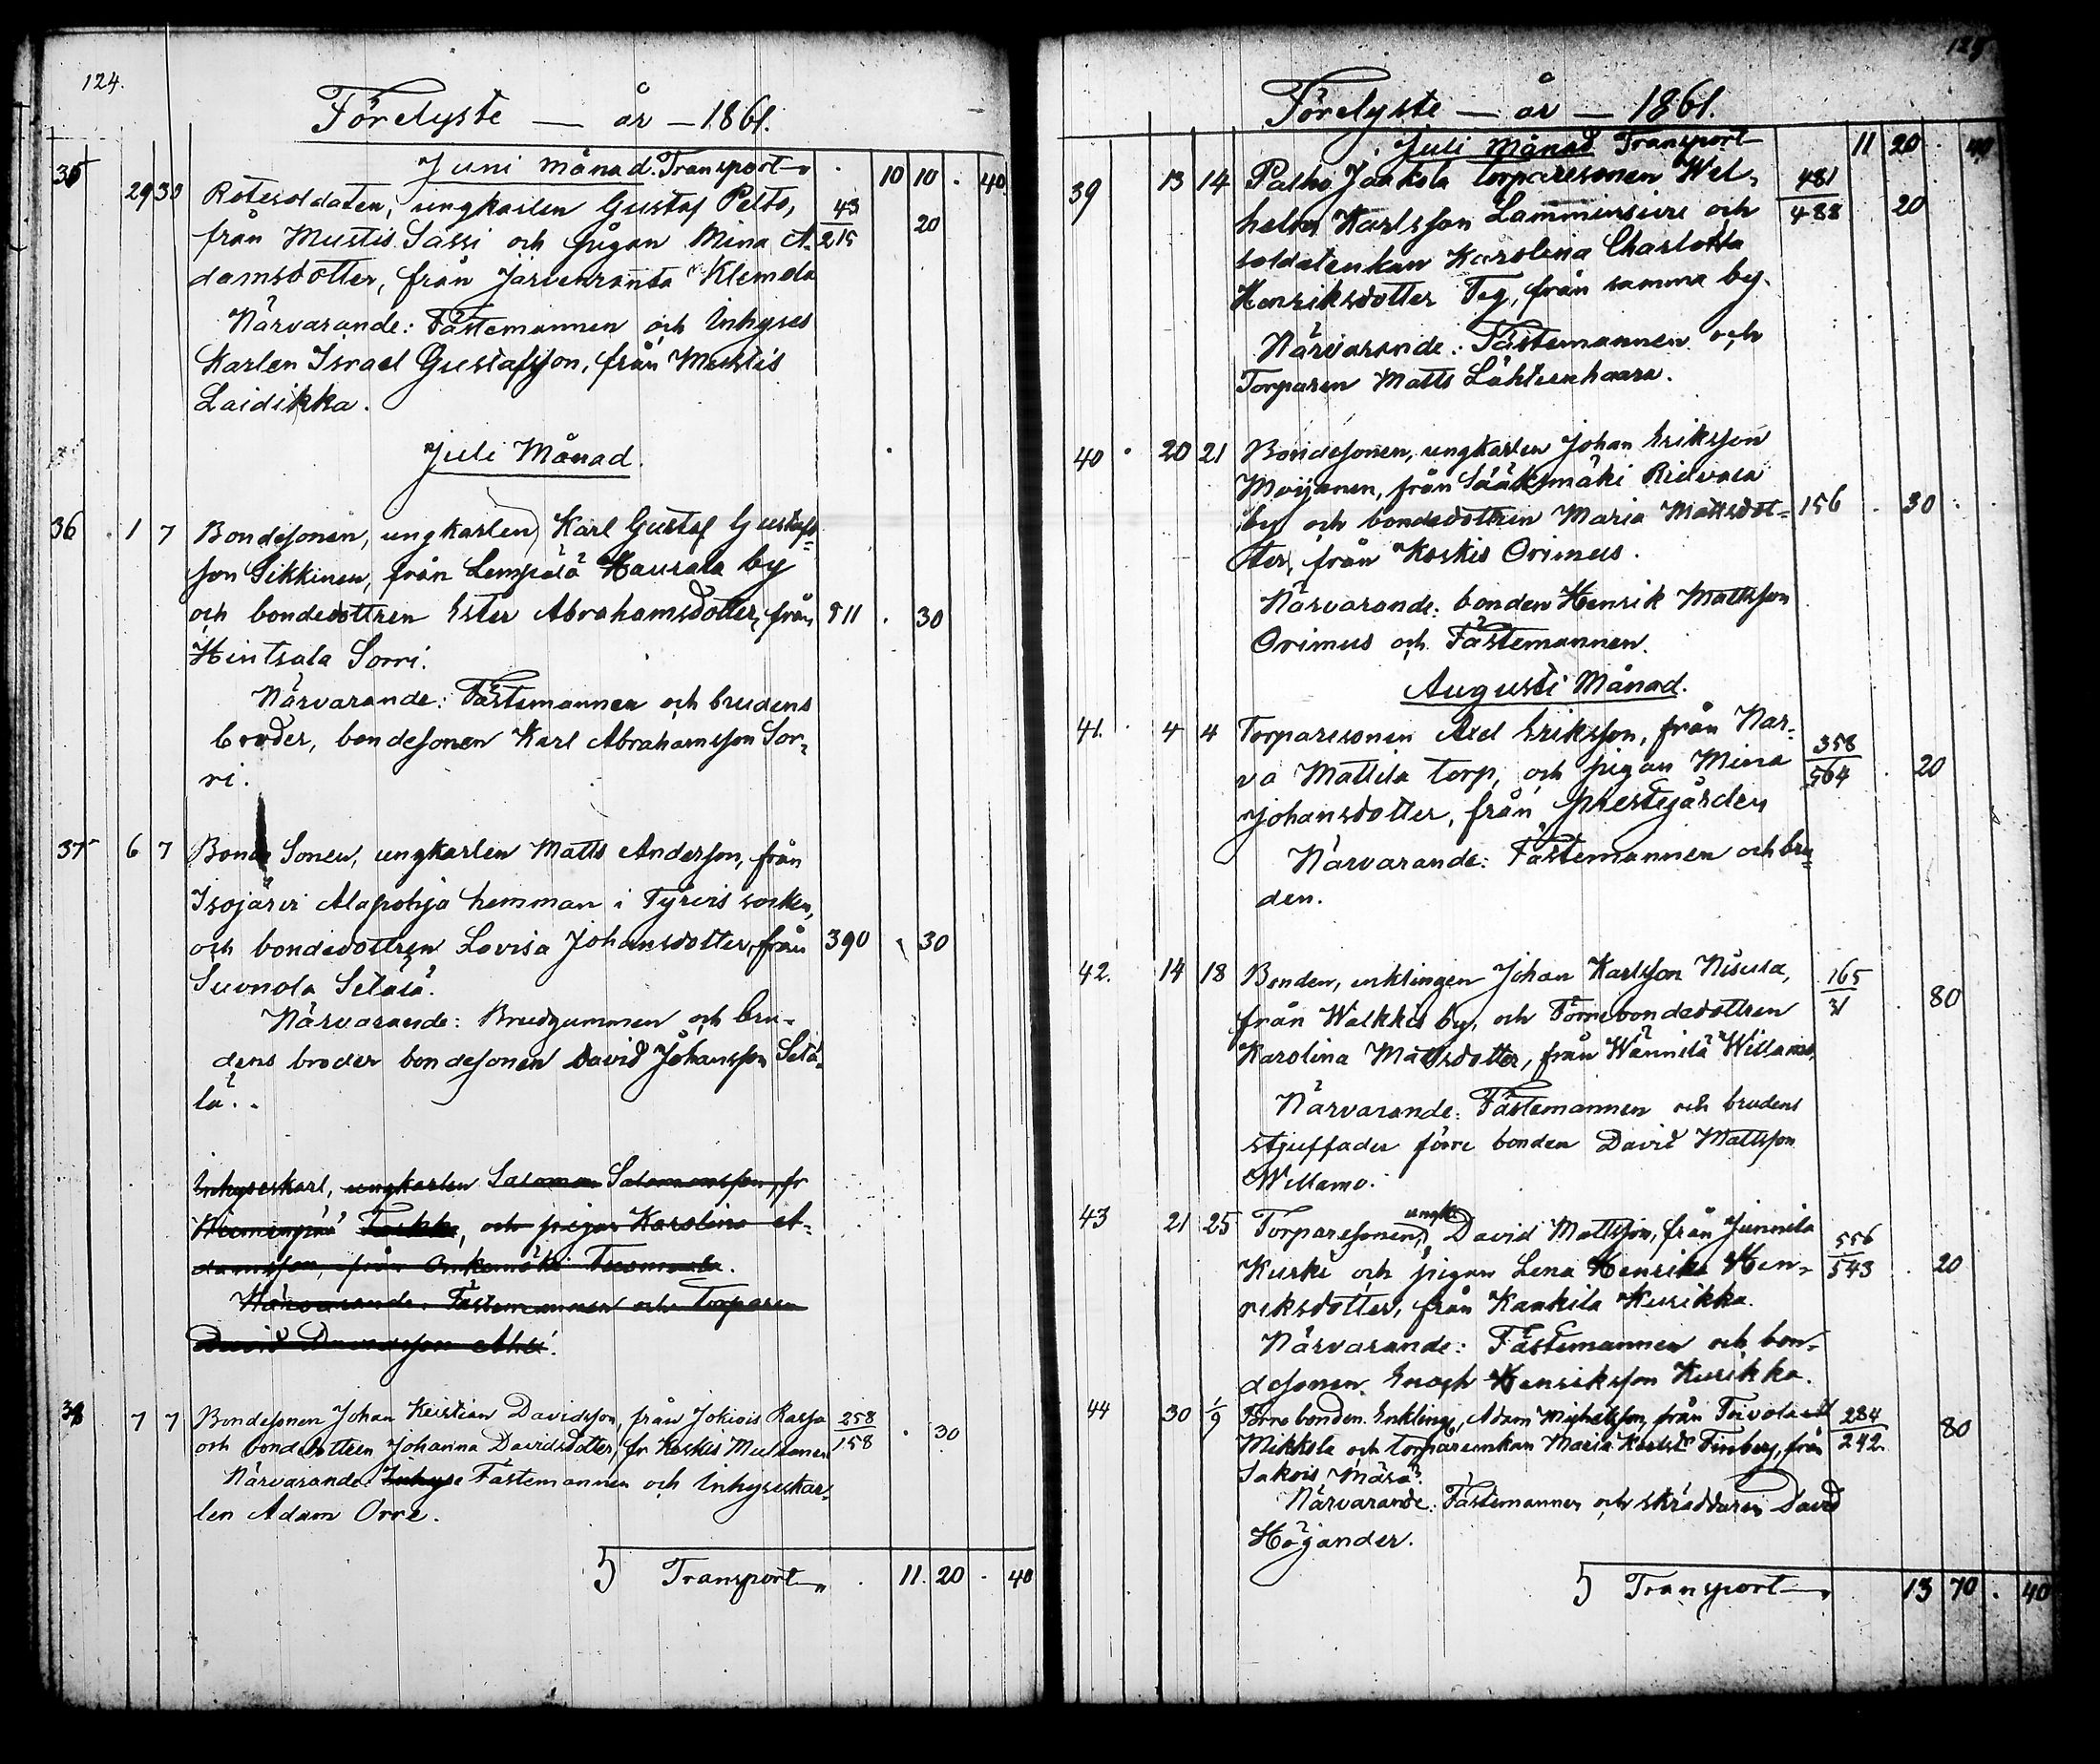 124.
Förelyste — år — 1861.
Juni Månad. Transport 10 10 40
35 29 30 Rotesoldaten, ungkarlen Gustaf Pelto, 43
från Mustis Sassi och pigan Mina A- 215 20
damsdotter, från Järvenranta Klemola
Närvarande: Fästemannen och Inhyses
Karlen Israel Gustafsson, från Mustis
Laidikka.
Juli Månad.
36 1 7 Bondesonen, ungkarlen Karl Gustaf Gustafs=
son Sikkinen, från Lempälä Haurala by
och bondedottren Ester Abrahamsdotter, från 811 30
Hintsala Sorri.
Närvarande: Fästemannen och brudens
broder, bondesonen Karl Abrahamsson Sor-
ri.
37 6 7 Bonde Sonen, ungkarlen Matts Andersson, från
Isojärvi Alapohja hemman i Tyrvis socken,
och bondedottren Lovisa Johansdotter, från 390 30
Suonola Setälä.
Närvarande: Brudgummen och bru-
dens broder bondesonen David Johansson Setä-
lä.
Inhyseskarl, ungkarlen Salomon Salomonsson, fr
och pigan Karolina A-
damsson, från
Närvarande: Fästemannen och Torparen
David Davidsson
38 7 7 Bondesonen Johan Kristian Davidsson, från Jokiois Rasja 258
och bondedottren Johanna Davidsdotter, fr Koskis Multanen 158 30
Närvarande: Inhyse Fästemannen och Inhyseskar-
len Adam Orre.
Transport 11 20 40
125
Förelyste — år — 1861.
Juli Månad Transport 11 20 40
39 13 14 Palho Jaakola torparesonen Wil- 481
helm Karlsson Lamminsivu och 488 20
soldatenkan Karolina Charlotta
Henriksdotter Teg, från samma by.
Närvarande: Fästemannen och
Torparen Matts Lähteenhaara.
40 20 21 Bondesonen, ungkarlen Johan Eriksson
Moijanen, från Sääksmäki Ridvala
by och bondedottren Maria Mattsdot- 156 30
ter, från Koskis Orimus.
Närvarande: bonden Henrik Mattsson
Orimus och Fästemannen.
Augusti Månad.
41. 4 4 Torparesonen Axel Eriksson, från Nar-
va Mattila torp, och pigan Mina 358/564 20
Johansdotter, från Prestgården
Närvarande: Fästemannen och bru=
den.
42. 14 18 Bonden, enklingen Johan Karlsson Nisula, 165
från Walkkis by, och Förrebondedottren 31 80
Karolina Mattsdotter, från Wännilä Willamo.
Närvarande: Fästemannen och brudens
stjuffader förre bonden David Mattsson
Willamo.
43 21 25 Torparesonen, ungk. David Mattsson, från Junnila 556
Kurki och pigan Lena Henrika Hen- 543 20
riksdotter, från Kaakila Kurikka.
Närvarande: Fästemannen och bon-
desonen Enoch Henriksson Kurikka.
44 30 1/9 Förrebonden Enklinge, Adam Michelsson, från Toivola 284
Mikkola och torpareenkan Maria Karlsdr Finberg, från 242 80
Sakois Märä.
Närvarande: Fästemannen och skräddaren David
Höijander.
Transport 13 70 40